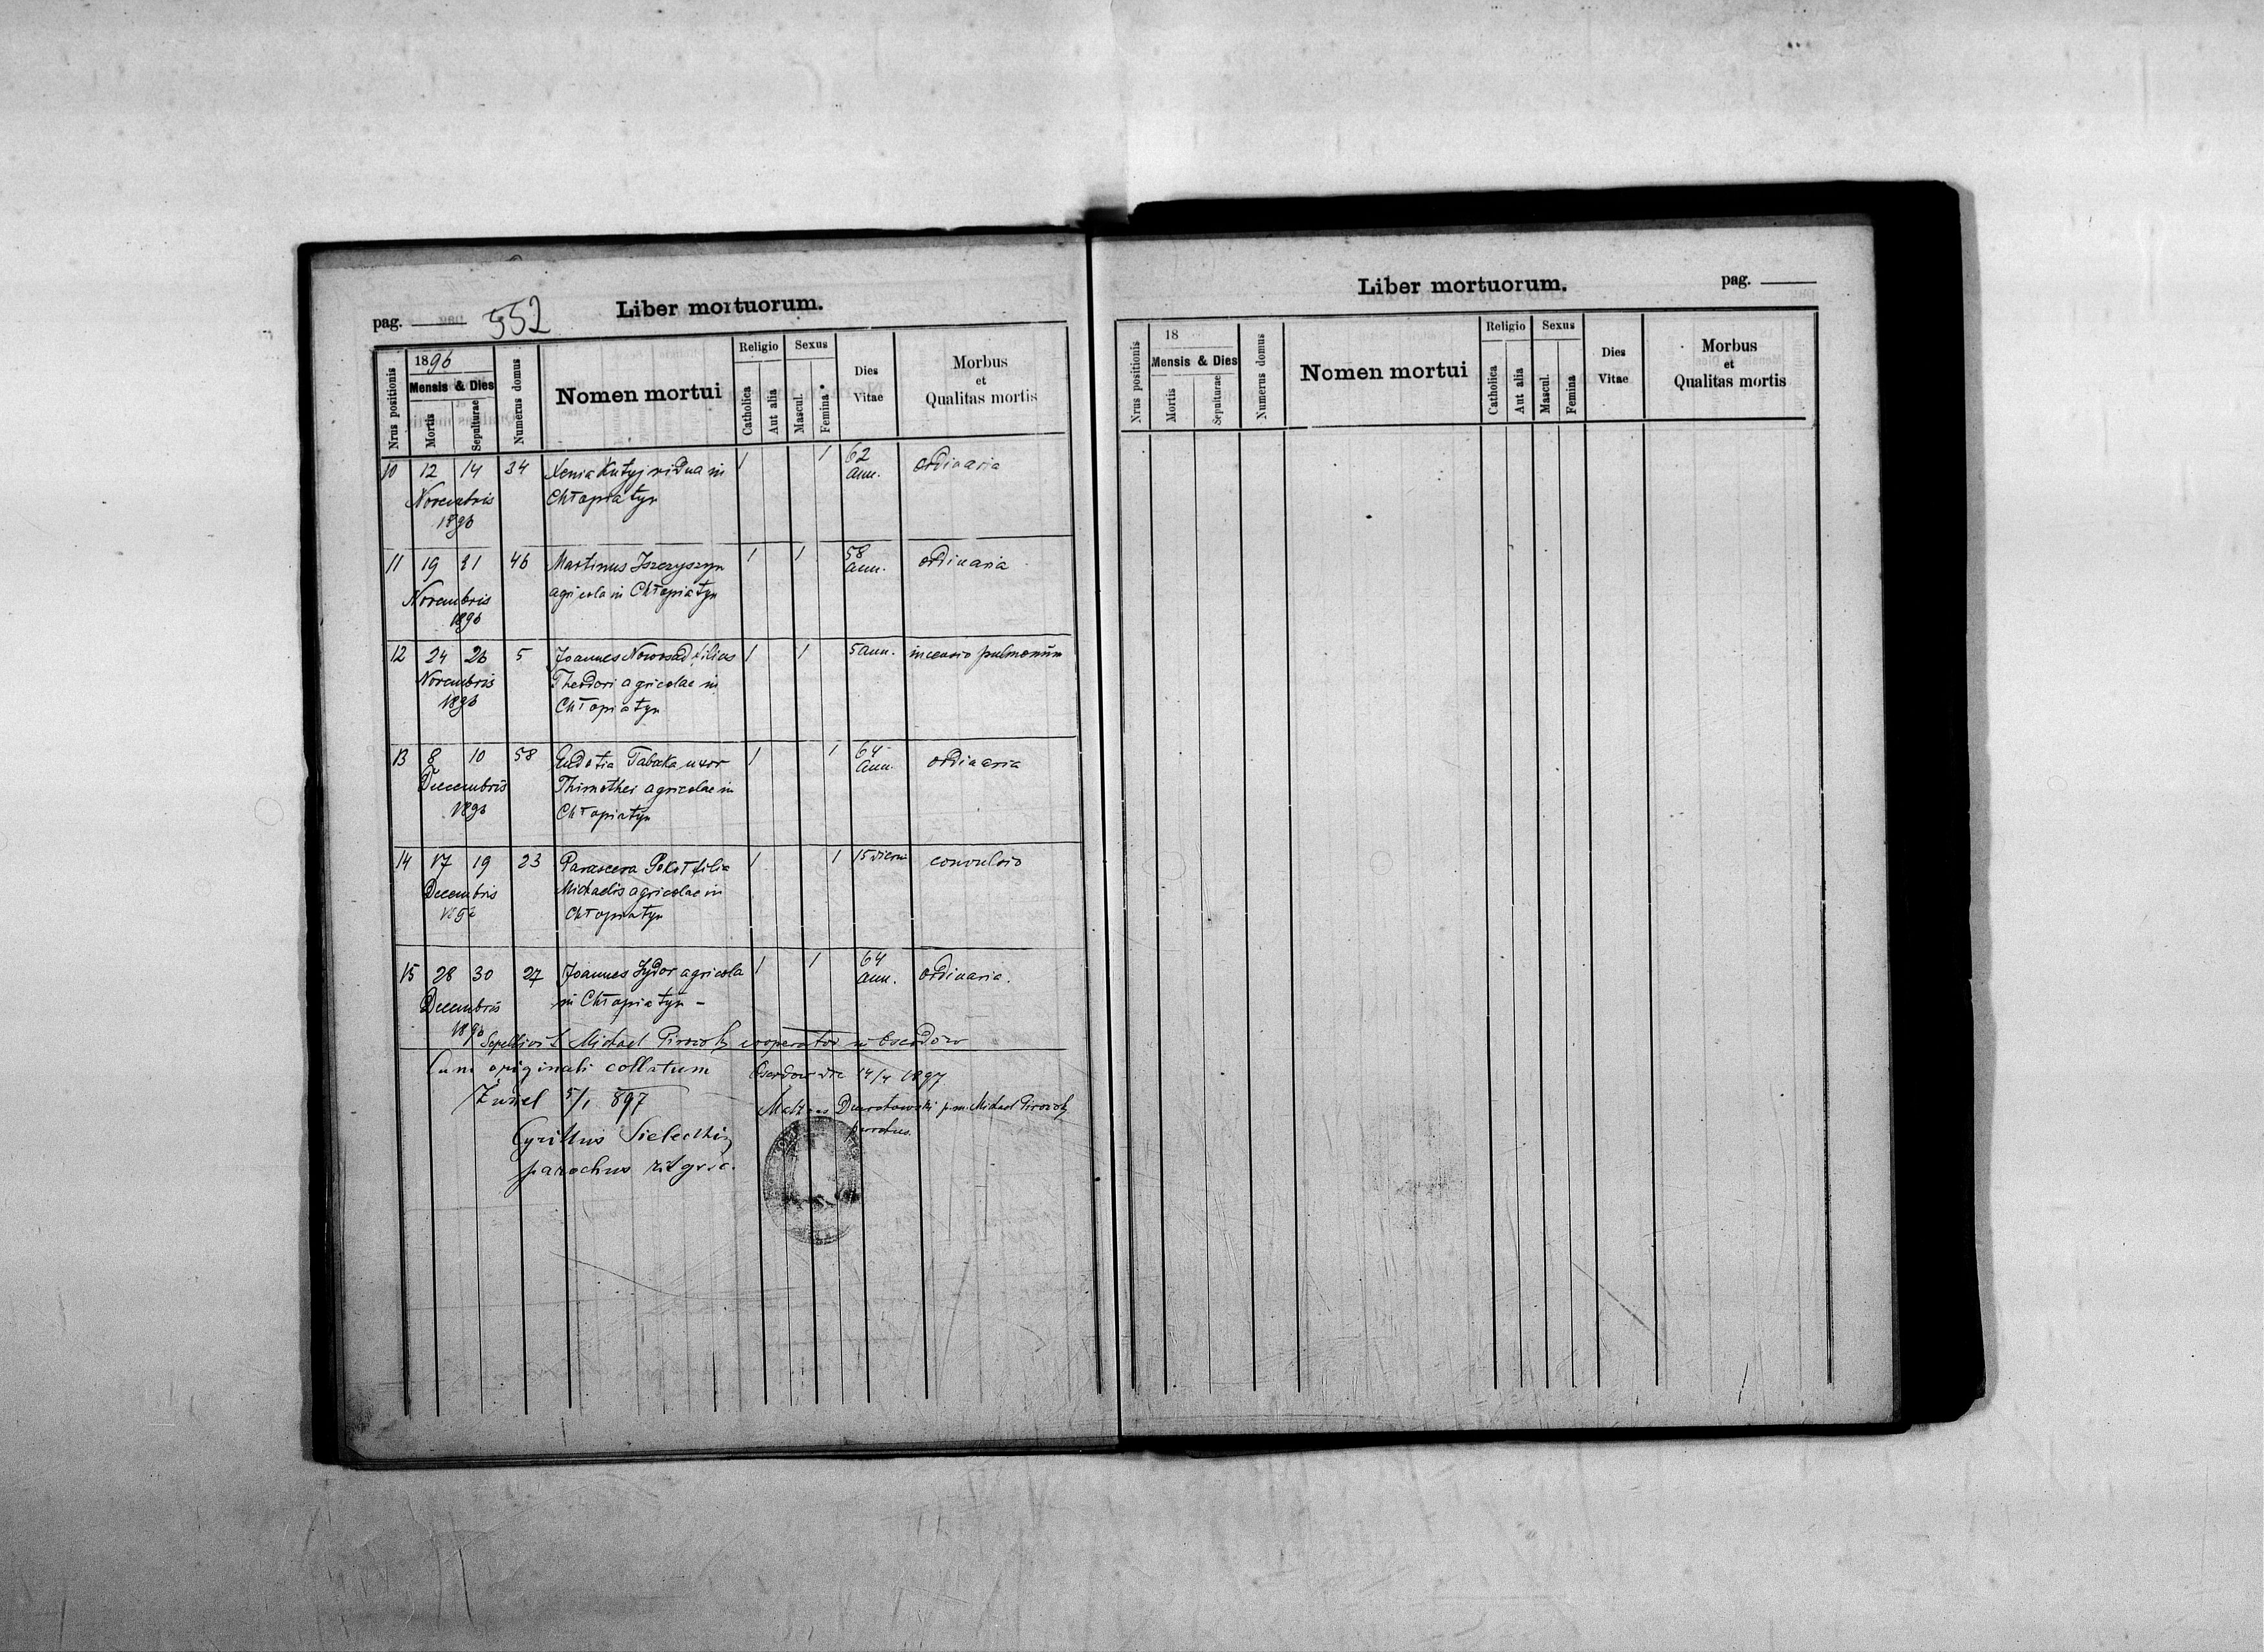 pag.
552
Liber mortuorum.
Nrus positionis
1896
Mensis & Dies
Mortis
Sepulturae
Numerus domus
Nomen mortui
Religio
Catholica
Aut alia
Sexus
Mascul.
Femina
Dies
Vitae
Morbus
et
Qualitas mortis
10 12 14 34 Xenia Kutyj vidua in 1 1 62 ordinaria
ann.
Novembris Chłopiatyn
1896
11 19 21 46 Martinus Iszczyszyn 1 1 58 ordinaria
ann.
agricola in Chłopiatyn
Novembris
1896
12 24 26 5 Joannes Nowosad filius 1 1 5 ann. incensio pulmonum
Novembris Theodori agricolae in
1896 Chłopiatyn
13 8 10 58 Eudotia Tabaka uxor 1 1 64 ordinaria
ann.
Decembris Thimothei agricolae in
1896 Chłopiatyn
14 17 19 23 Parasceva filia 1 1 15 dierum convulsio
Decembris Michaelis agricolae in
1896 Chłopiatyn
15 28 30 27 Joannes Sydor agricola 1 1 64 ordinaria.
ann.
Decembris in Chłopiatyn -
1896
Sepelivit Michael cooperator in Oserdów
Cum originali collatum
5/1 897
Cyrillus Sielecki
parochus rit gr. c.
Oserdów die 14/1 1897
p.m. Michael
Liber mortuorum.
pag.
Nrus positionis
18
Mensis & Dies
Mortis
Sepulturae
Numerus domus
Nomen mortui
Religio
Catholica
Aut alia
Sexus
Mascul.
Femina
Dies
Vitae
Morbus
et
Qualitas mortis